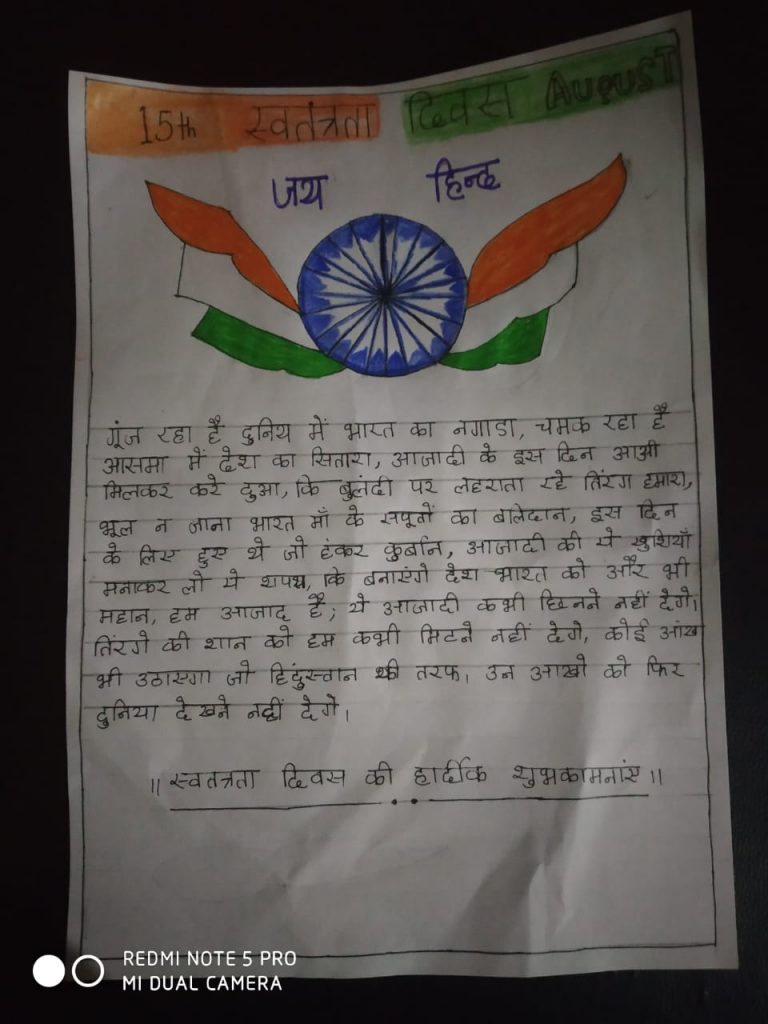 15th स्वतंत्रता दिवस AUGUST
जय हिन्द
गूंज रहा है दुनिय में भारत का नगाडा, चमक रहा है
आसमा में देश का सितारा, आजादी के इस दिन आओ
मिलकर करे दुआ, कि बुलंदी पर लहराता रहे तिंरग हमारा,
भूल न जाना भारत माँ के सपूतों का बलिदान, इस दिन
के लिए हुए थे जो हंकर कुर्बान, आजादी की ये खुशियाँ
मनाकर लो ये शपथ, कि बनाएंगे देश भारत को और भी
महान, हम आजाद है; ये आजादी कभी छिनने नहीं देगे।
तिंरगे की शान को हम कभी मिटने नहीं देगे, कोई आंख
भी उठाएगा जो हिंदुस्तान की तरफ। उन आखो को फिर
दुनिया देखने नहीं देगे।
॥ स्वतत्रता दिवस की हार्दीक शुभकामनांए ॥
REDMI NOTE 5 PRO
MI DUAL CAMERA